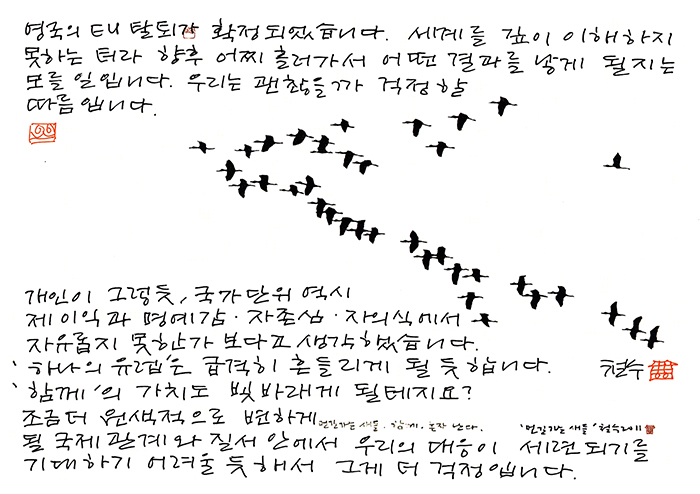 영국의 EU 탈퇴가 확정되었습니다. 세계를 깊이 이해하지
못하는 터라 향후 어찌 흘러가서 어떤 결과를 낳게 될지는
모를 일입니다. 우리는 괜찮을까 걱정할
따름입니다.
개인이 그렇듯, 국가단위 역시
제 이익과 명예감·자존심·자의식에서
자유롭지 못한가 보다고 생각했습니다.
'하나의 유럽'은 급격히 흔들리게 될 듯 합니다.
철수
'함께'의 가치도 빛바래게 될테지요?
조금 더 원색적으로 변하게
먼길가는 새들. 함께, 혼자 난다.
'먼길가는 새들'
될 국제관계와 질서 안에서 우리의 대응이 세련되기를
기대하기 어려울 듯해서 그게 더 걱정입니다.